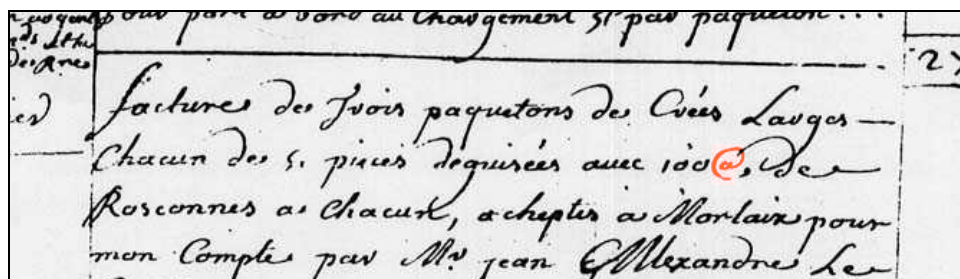 pour port a bord au Chargement 5s par paqueton...
facture de Trois paquetons de Crées Larges
Chacun de 5. pieces deguisées avec 100 @, de
Rosconnes a Chacun, acheptés a Morlaix pour
mon Compte par Mr. jean Allexandre Le